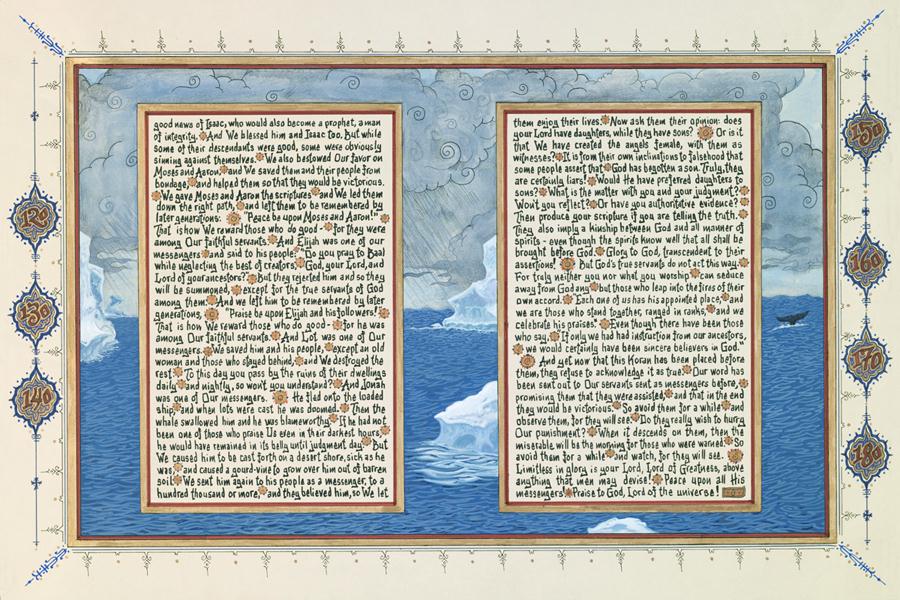 good news of Isaac, who would also become a prophet, a man
of integrity. And We blessed him and Isaac too. But while
some of their descendants were good, some were obviously
sinning against themselves. We also bestowed Our favor on
Moses and Aaron and We saved them and their people from
bondage, and helped them so that they would be victorious.
We gave Moses and Aaron the scriptures and We led them
down the right path, and left them to be remembered by
later generations: "Peace be upon Moses and Aaron!"
That is how We reward those who do good - for they were
among Our faithful servants. And Elijah was one of our
messengers and said to his people: "Do you pray to Baal
while neglecting the best of creators, God, your Lord, and
Lord of your ancestors? But they rejected him and so they
will be summoned, except for the true servants of God
among them. And we left him to be remembered by later
generations, "Praise be upon Elijah and his followers!
That is how We reward those who do good - for he was
among Our faithful servants. And Lot was one of Our
messengers. We saved him and his people, except an old
woman and those who stayed behind, and We destroyed the
rest. To this day you pass by the ruins of their dwellings
daily and nightly, so won't you understand? And Jonah
was one of Our messengers. He fled onto the loaded
ship and when lots were cast he was doomed. Then the
whale swallowed him and he was blameworthy. If he had not
been one of those who praise Us even in their darkest hours,
he would have remained in its belly until judgment day. But
We caused him to be cast forth on a desert shore, sick as he
was, and caused a gourd-vine to grow over him out of barren
soil. We sent him again to his people as a messenger, to a
hundred thousand or more, and they believed him, so We let
them enjoy their lives. Now ask them their opinion: does
your Lord have daughters, while they have sons? Or is it
that We have created the angels female, with them as
witnesses? It is from their own inclinations to falsehood that
some people assert that God has begotten a son. Truly, they
are certainly liars! Would He have preferred daughters to
sons? What is the matter with you and your judgment?
Won't you reflect? Or have you authoritative evidence?
Then produce your scripture if you are telling the truth.
They also imply a kinship between God and all manner of
spirits - even though the spirits know well that all shall be
brought before God. Glory to God, transcendent to their
assertions! But God's true servants do not act this way.
For truly neither you nor what you worship can seduce
away from God any but those who leap into the fires of their
own accord. Each one of us has his appointed place, and
we are those who stand together, ranged in ranks, and we
celebrate his praises." Even though there have been those
who say, If only we had had instruction from our ancestors,
we would certainly have been sincere believers in God."
And yet now that this Koran has been placed before
them, they refuse to acknowledge it as true. Our word has
been sent out to Our servants sent as messengers before,
promising them that they were assisted, and that in the end
they would be victorious. So avoid them for a while and
observe them, for they will see. Do they really wish to hurry
Our punishment? When it descends on them, then the
miserable will be the morning for those who were warned. So
avoid them for a while and watch, for they will see.
Limitless in glory is your Lord, Lord of Greatness, above
anything that men may devise! Peace upon all His
messengers. Praise to God, Lord of the universe!
130
140
150
160
170
180